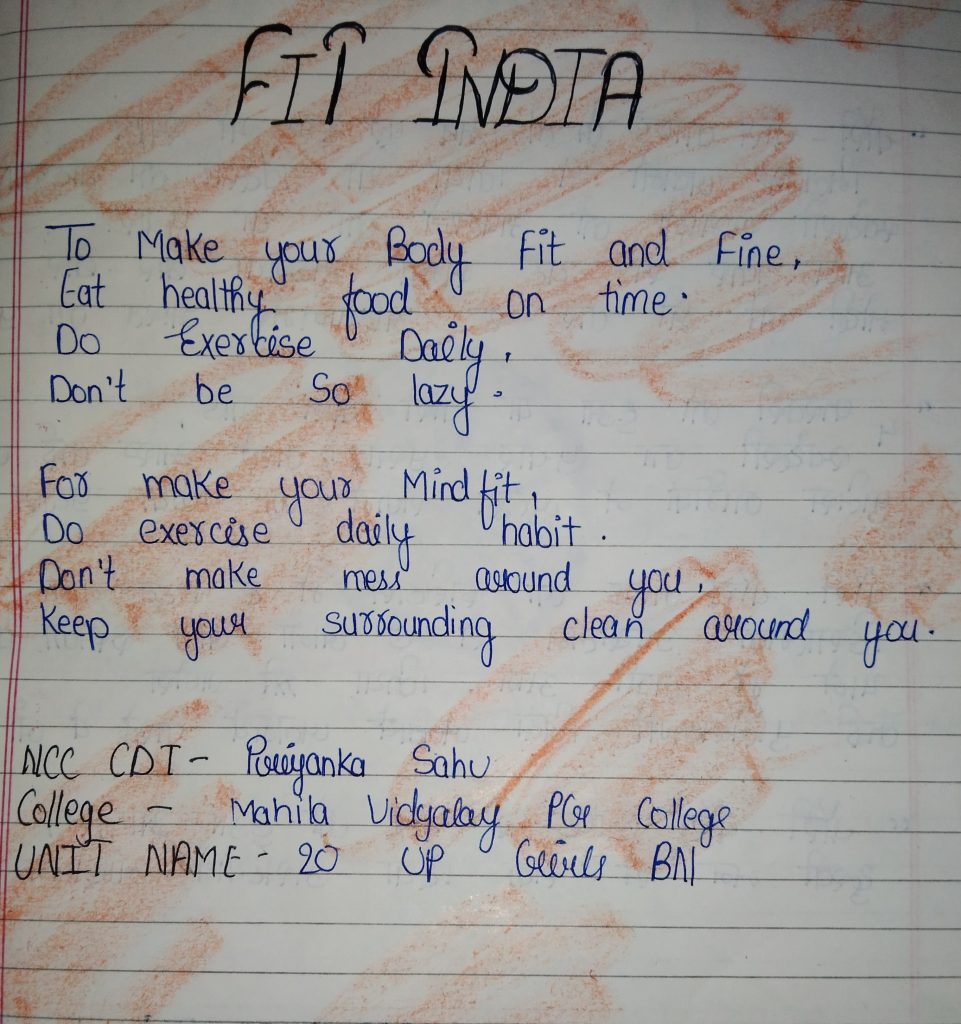 FIT INDIA
To Make your Body Fit and Fine,
Eat healthy food on time.
Do Exercise Daily,
Don't be So lazy.
For make your Mind fit,
Do exercise daily habit.
Don't make mess around you,
Keep your surrounding clean around you.
NCC CDT - Priyanka Sahu
College - Mahila Vidyalay PG College
UNIT NAME - 20 UP Girls BN